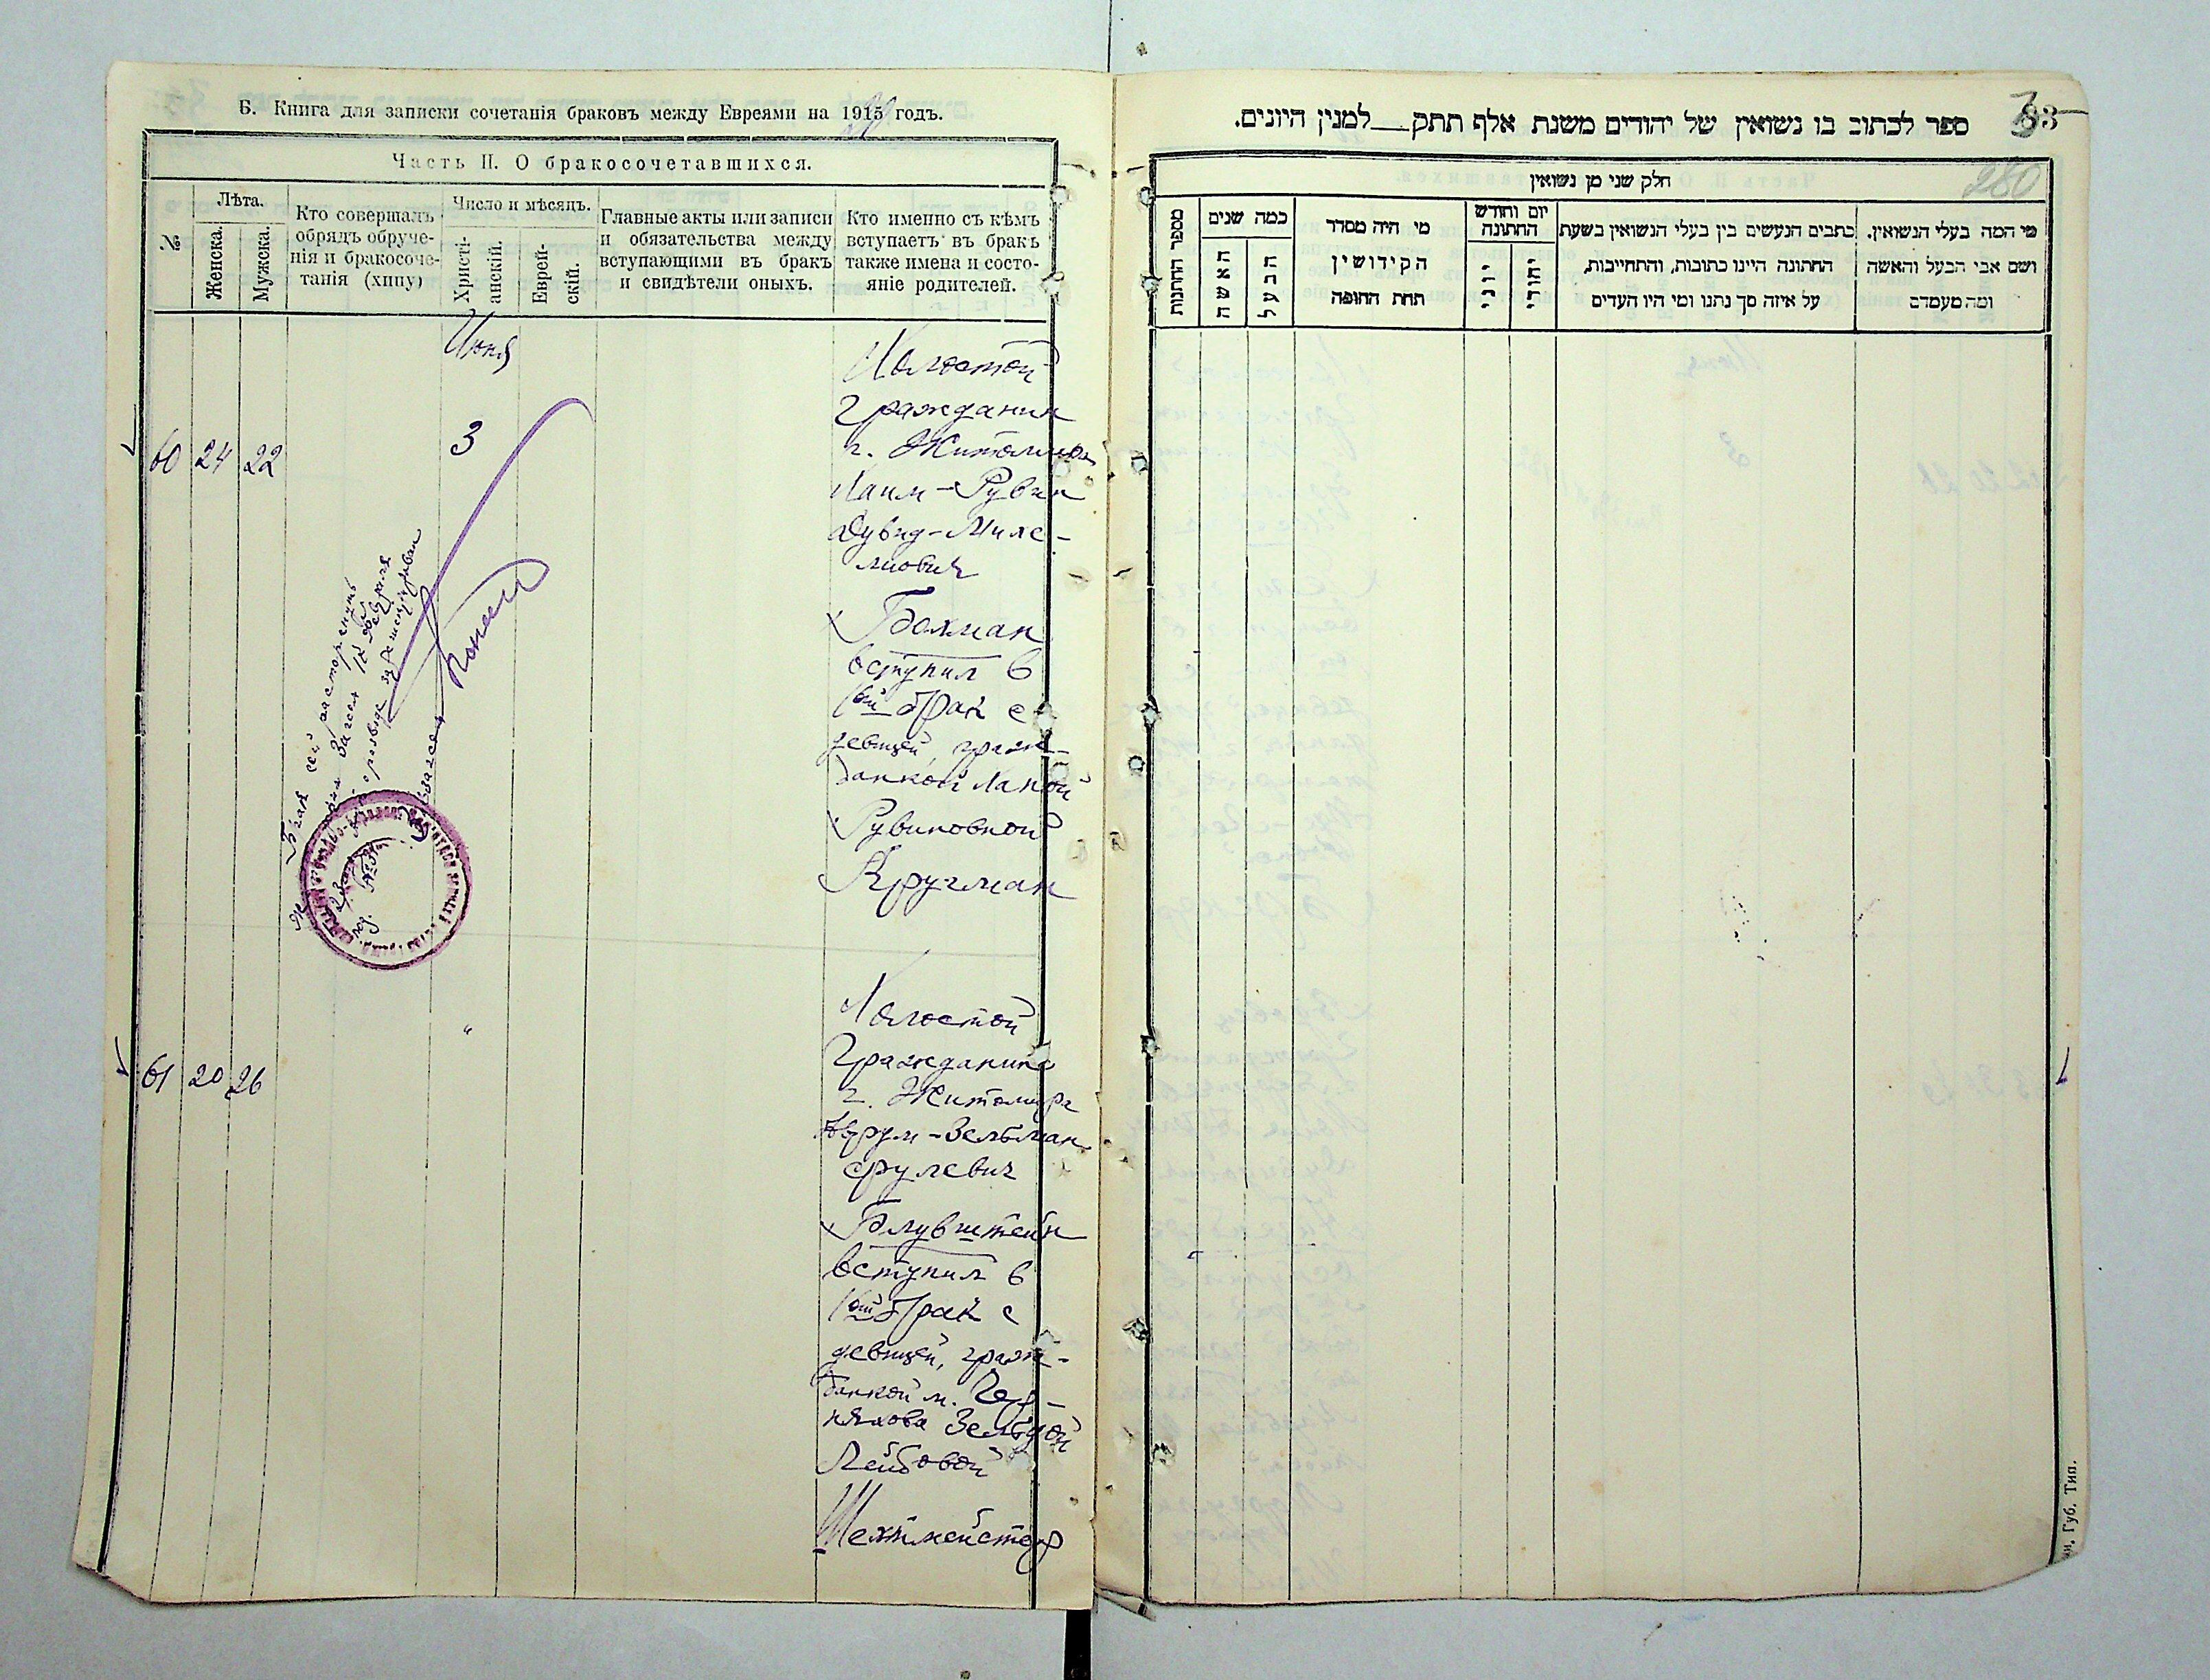 Б. Книга для записки сочетанія браковъ между Евреями на 1915 годъ.
Часть II. О бракосочетавшихся.
№
Лѣта.
Женска.
Мужска.
Кто совершалъ
обрядъ обруче-
нія и бракосоче-
танія (хипу)
Число и мѣсяцъ.
Христі-
анскій.
Еврей-
скій.
Главные акты или записи
и обязательства между
вступающими въ бракъ
и свидѣтели оныхъ.
Кто именно съ кѣмъ
вступаетъ въ бракъ
также имена и состо-
яніе родителей.
Июня
60 24 22
3
Холостой
Гражданин
г. Житомира
Хаим-Рувин
Дувид-Михе-
лиович
Бохман
вступил в
1ый брак с
девицей, граж-
данкой Ханой
Рувиновной
Кругман
Брак сей расторгнут
61 20 26
"
Холостой
Гражданин
г. Житомира
Аврум-Зельман
Срулевич
Блувштейн
вступил в
1ый брак с
девицей, граж-
данкой м. Чер-
няхова Зельдой
Лейбовой
Шехтмейстер
ספר לכתוב בו נשואין של יהודים משנת אלף תתק__למנין היונים.
83
280
חלק שני מן נשואין
מספר החתונות
כמה שנים
האשה
הבעל
מי היה מסדר
הקידושין
תחת החופה
יום וחודש
החתונה
יוני
יהודי
כתבים הנעשים בין בעלי הנשואין בשעת
החתונה היינו כתובות, והתחייבות,
על איזה סך נתנו ומי היו העדים
מי המה בעלי הנשואין.
ושם אבי הבעל והאשה
ומה מעמדם
Губ. Тип.